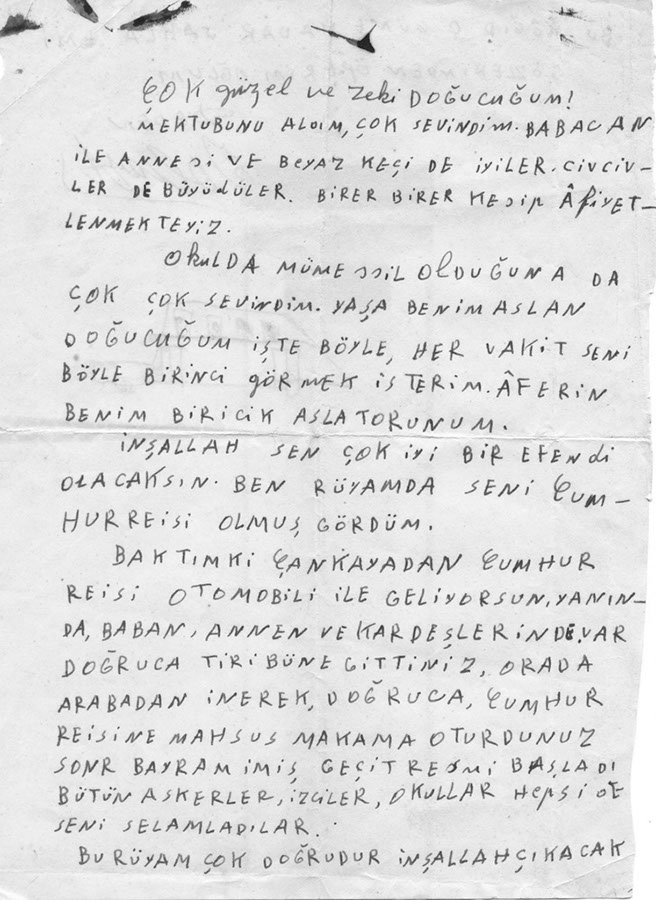 ÇOK güzel ve zeki DOĞUCUĞUM!
MEKTUBUNU ALDIM, ÇOK SEVINDIM. BABACAN
iLE ANNESi VE BEYAZ KEÇi DE iYiLER. CiVCiV-
LER DE BÜYÜDÜLER. BiRER BiRER KESiP ÂFiYET-
LENMEKTEYiZ.
OKULDA MÜMESSiL OLDUĞUNA DA
ÇOK ÇOK SEVINDIM. YAŞA BENIM ASLAN
DOĞUCUĞUM iŞTE BÖYLE, HER VAKiT SENi
BÖYLE BiRiNCi GÖRMEK iSTERiM. ÂFERiN
BENiM BiRiCiK ASLATORUNUM.
iNŞALLAH SEN ÇOK iYi BiR EFENDi
OLACAKSIN. BEN RÜYAMDA SENi CUM-
HURREiSi OLMUŞ GÖRDÜM.
BAKTIMKi ÇANKAYADAN CUMHUR
REiSi OTOMOBiLi iLE GELiYORSUN, YANIN-
DA, BABAN, ANNEN VE KARDEŞLERiNDE VAR
DOĞRUCA TiRiBÜNE GiTTiNiZ, ORADA
ARABADAN iNEREK, DOĞRUCA, CUMHUR
REiSiNE MAHSUS MAKAMA OTURDUNUZ
SONR BAYRAMiMiŞ GEÇiT RESMi BAŞLADI
BÜTÜN ASKERLER, iZCiLER, OKULLAR HEPSi DE
SENi SELAMLADILAR.
BU RÜYAM ÇOK DOĞRUDUR iNŞALLAH ÇIKACAK